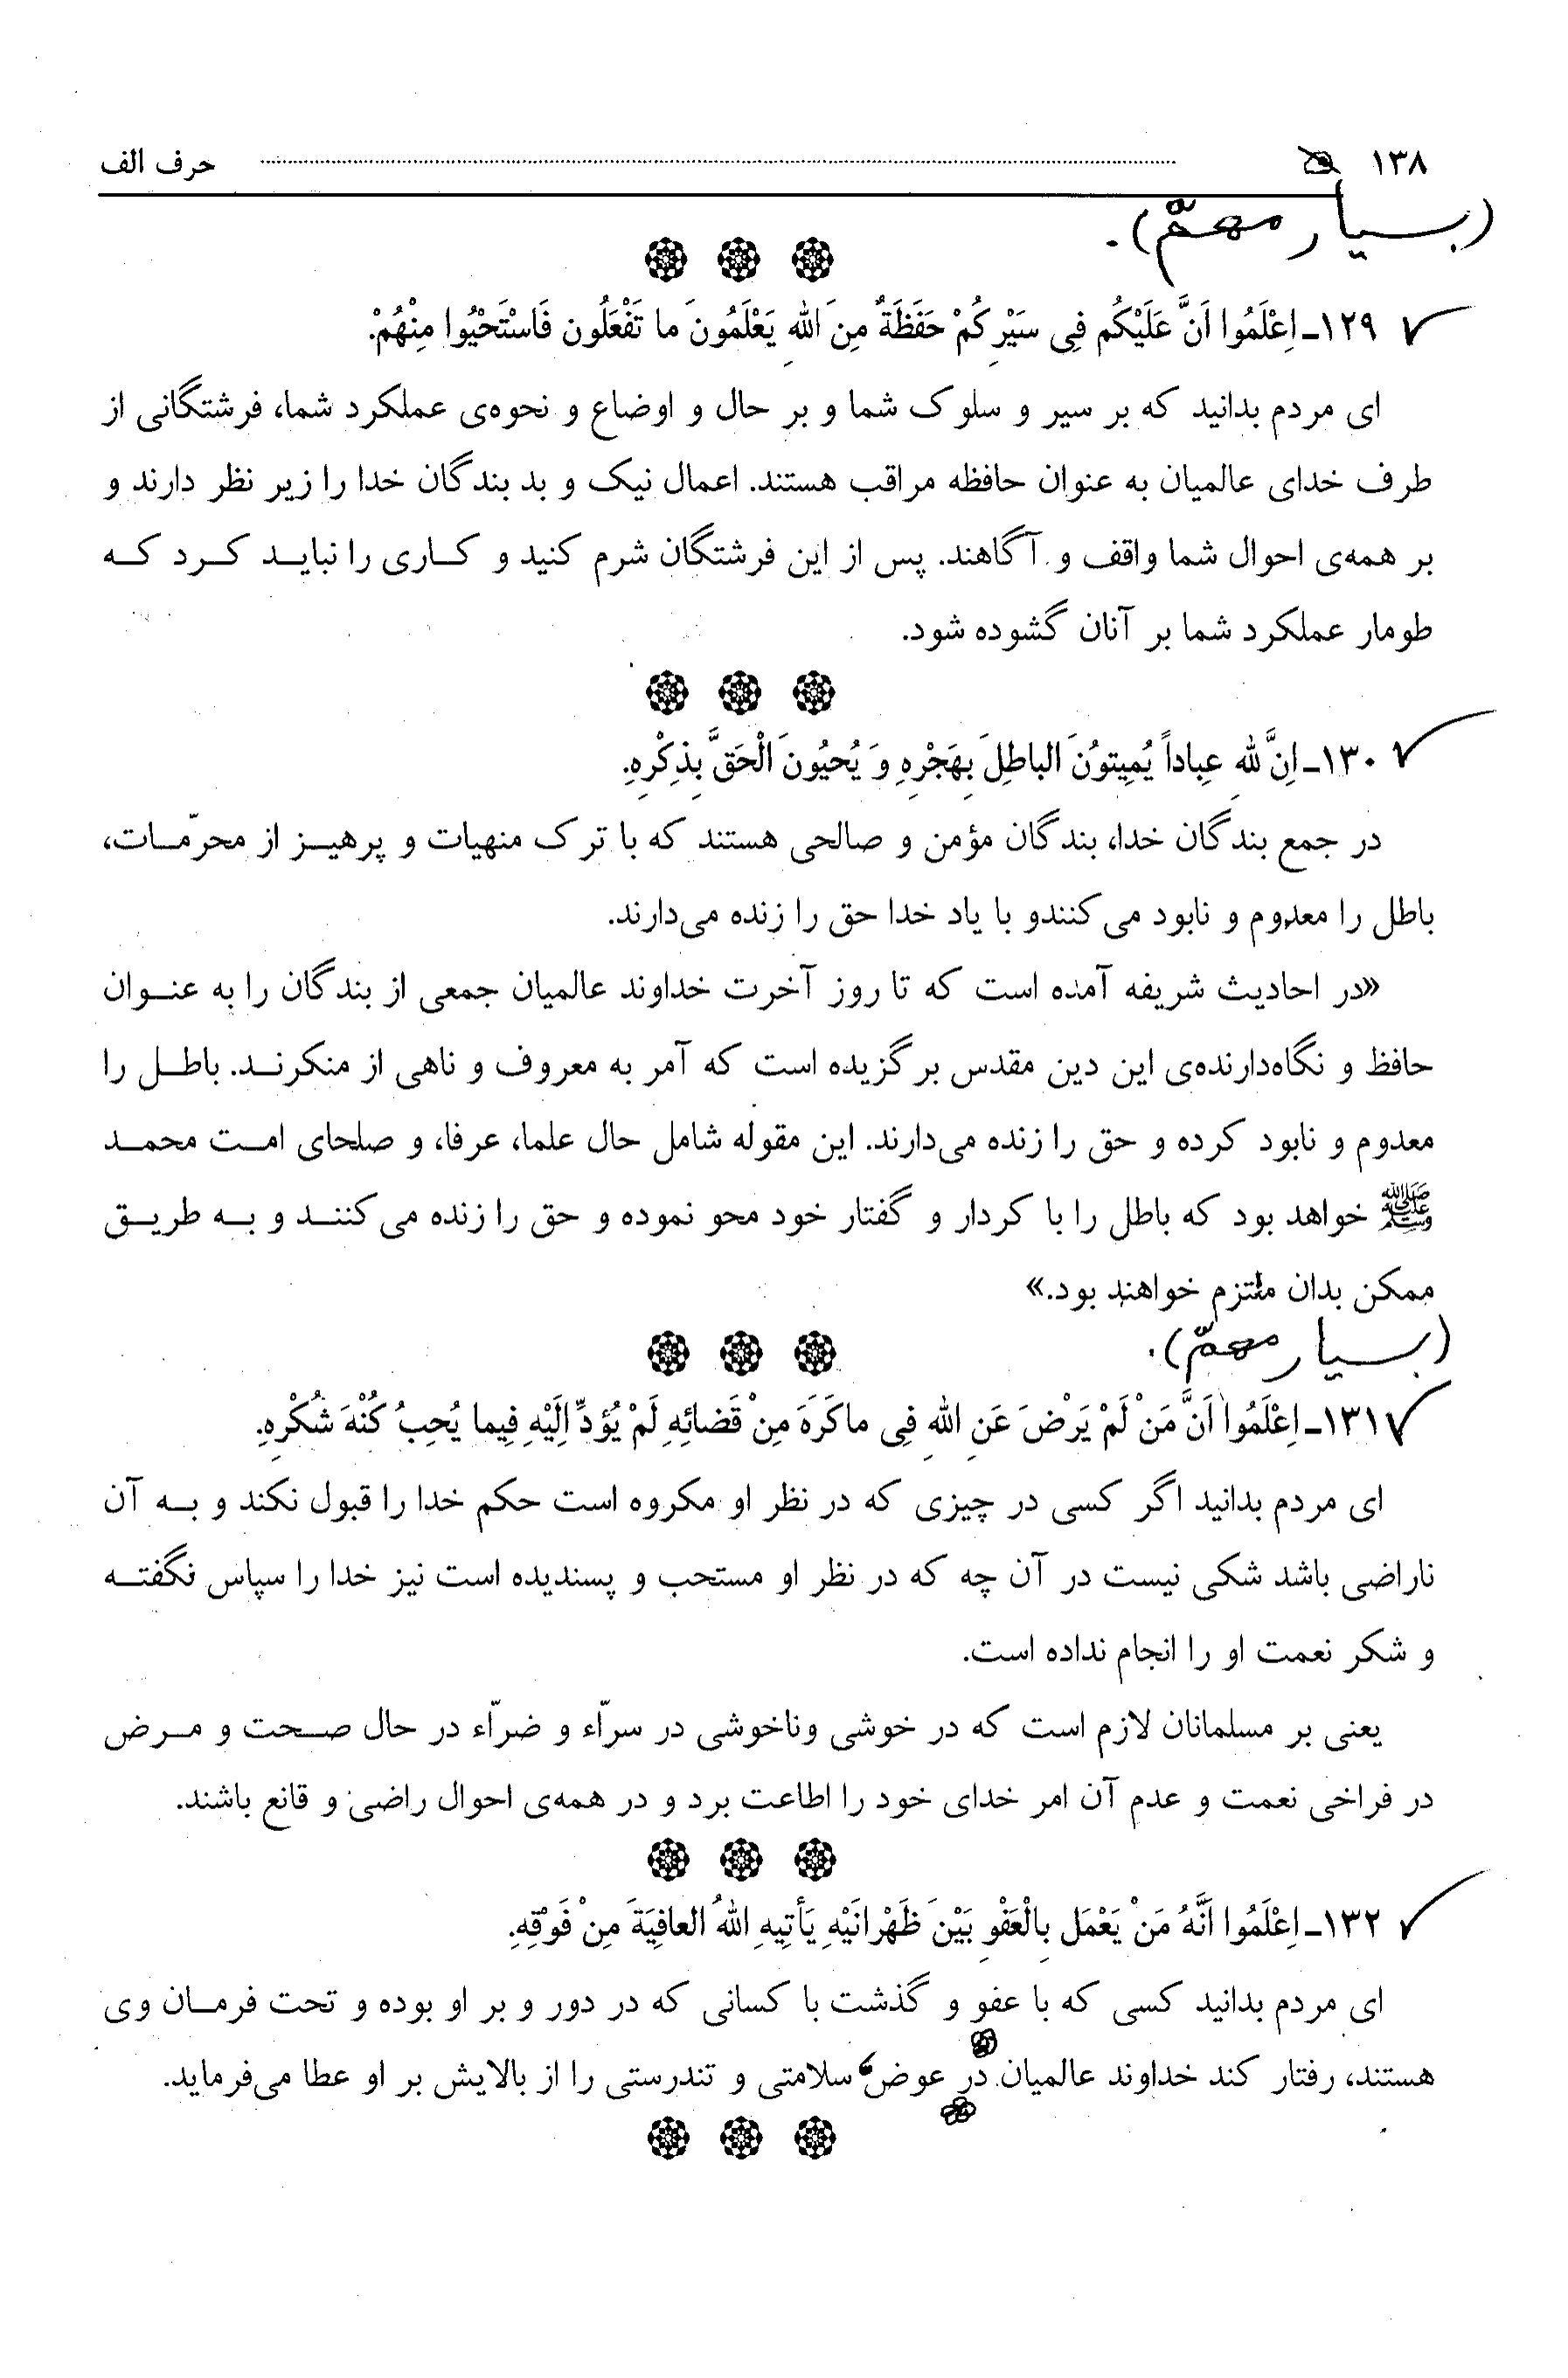 ۱۳۸ حرف الف
(بسیار مهمّ).
۱۲۹ـ اِعْلَمُوا اَنَّ عَلَیْکُم فِی سَیْرِکُمْ حَفَظَةٌ مِنَ اللهِ یَعْلَمُونَ ما تَفْعَلُون فَاسْتَحْیُوا مِنْهُمْ.
ای مردم بدانید که بر سیر و سلوک شما و بر حال و اوضاع و نحوه‌ی عملکرد شما، فرشتگانی از
طرف خدای عالمیان به عنوان حافظه مراقب هستند. اعمال نیک و بد بندگان خدا را زیر نظر دارند و
بر همه‌ی احوال شما واقف و آگاهند. پس از این فرشتگان شرم کنید و کاری را نباید کرد که
طومار عملکرد شما بر آنان گشوده شود.
۱۳۰ـ اِنَّ للهِ عِباداً یُمِیتوُنَ الباطِلَ بِهَجْرِهِ وَ یُحیُونَ الْحَقَّ بِذِکْرِهِ.
در جمع بندگان خدا، بندگان مؤمن و صالحی هستند که با ترک منهیات و پرهیز از محرّمات،
باطل را معدوم و نابود می‌کنندو با یاد خدا حق را زنده می‌دارند.
«در احادیث شریفه آمده است که تا روز آخرت خداوند عالمیان جمعی از بندگان را به عنوان
حافظ و نگاه‌دارنده‌ی این دین مقدس برگزیده است که آمر به معروف و ناهی از منکرند. باطل را
معدوم و نابود کرده و حق را زنده می‌دارند. این مقوله شامل حال علما، عرفا، و صلحای امت محمد
ﷺ خواهد بود که باطل را با کردار و گفتار خود محو نموده و حق را زنده می‌کنند و به طریق
ممکن بدان ملتزم خواهند بود.»
(بسیار مهمّ).
۱۳۱ـ اِعْلَمُوا اَنَّ مَنْ لَمْ یَرْضَ عَنِ اللهِ فِی ماکَرَهَ مِنْ قَضائِهِ لَمْ یُؤدِّ اِلَیْهِ فِیما یُحِبُ کُنْهَ شُکْرِهِ.
ای مردم بدانید اگر کسی در چیزی که در نظر او مکروه است حکم خدا را قبول نکند و به آن
ناراضی باشد شکی نیست در آن چه که در نظر او مستحب و پسندیده است نیز خدا را سپاس نگفته
و شکر نعمت او را انجام نداده است.
یعنی بر مسلمانان لازم است که در خوشی وناخوشی در سرّاء و ضرّاء در حال صحت و مرض
در فراخی نعمت و عدم آن امر خدای خود را اطاعت برد و در همه‌ی احوال راضی و قانع باشند.
۱۳۲ـ اِعْلَمُوا اَنَّهُ مَنْ یَعْمَل بِالْعَفْوِ بَیْنَ ظَهْرانَیْهِ یَأتِیهِ اللهُ العافِیَةَ مِنْ فَوْقِهِ.
ای مردم بدانید کسی که با عفو و گذشت با کسانی که در دور و بر او بوده و تحت فرمان وی
هستند، رفتار کند خداوند عالمیان در عوض سلامتی و تندرستی را از بالایش بر او عطا می‌فرماید.